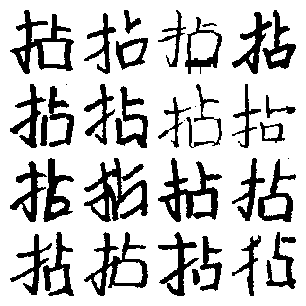 拈拈拈拈
拈拈拈拈
拈拈拈拈
拈拈拈拈